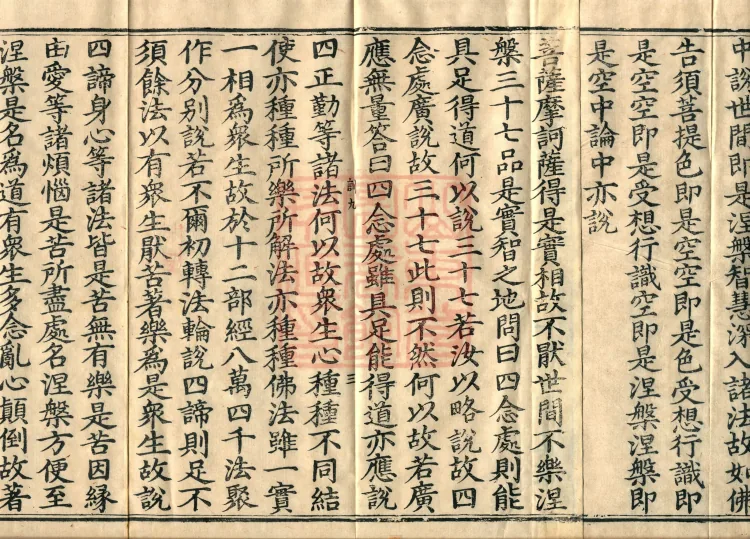 中說世間即是涅槃智慧深入諸法故如佛
告須菩提色即是空空即是色受想行識即
是空空即是受想行識空即是涅槃涅槃即
是空中論中亦說
菩薩摩訶薩得是實相故不厭世間不樂涅
槃三十七品是實智之地問曰四念處則能
具足得道何以說三十七若汝以略說故四
念處廣說故三十七此則不然何以故若廣
應無量答曰四念處雖具足能得道亦應說
訓九 三
四正勤等諸法何以故衆生心種種不同結
使亦種種所樂所解法亦種種佛法雖一實
一相爲衆生故於十二部經八萬四千法聚
作分別說若不爾初轉法輪說四諦則足不
須餘法以有衆生厭苦著樂爲是衆生故說
四諦身心等諸法皆是苦無有樂是苦因緣
由愛等諸煩惱是苦所盡處名涅槃方便至
涅槃是名爲道有衆生多念亂心顛倒故著